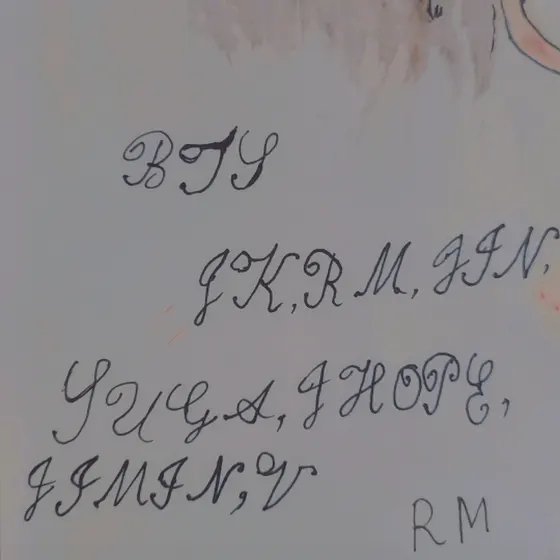 BTS
JK, RM, JIN,
SUGA, JHOPE,
JIMIN, V
RM